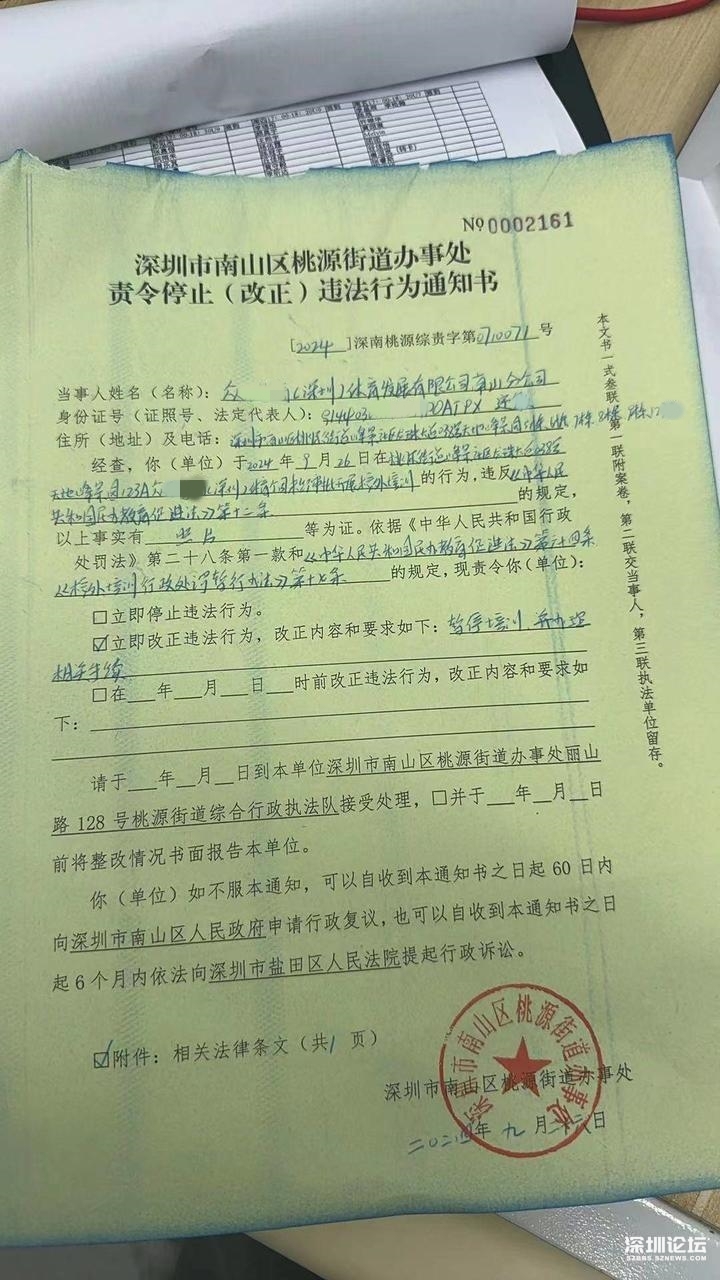 № 0002161
深圳市南山区桃源街道办事处
责令停止（改正）违法行为通知书
[2024]深南桃源综责字第0710071号
当事人姓名（名称）：众 （深圳）体育发展有限公司南山分公司
身份证号（证照号、法定代表人）：914403
住所（地址）及电话：深圳市南山区桃源街道峰景社区龙珠大道038号
经查，你（单位）于2024年9月26日在桃源街道峰景社区龙珠大道038号
123A众 （深圳）体育 未经审批开展校外培训的行为，违反《中华人民
共和国民办教育促进法》第十二条的规定，
以上事实有 照片 等为证。依据《中华人民共和国行政
处罚法》第二十八条第一款和《中华人民共和国民办教育促进法》第六十四条
《校外培训行政处罚暂行办法》第十七条的规定，现责令你（单位）：
□立即停止违法行为。
☑立即改正违法行为，改正内容和要求如下：暂停培训，并办理
相关手续
□在___年___月___日___时前改正违法行为，改正内容和要求如
下：
请于___年___月___日到本单位深圳市南山区桃源街道办事处丽山
路128号桃源街道综合行政执法队接受处理，□并于___年___月___日
前将整改情况书面报告本单位。
你（单位）如不服本通知，可以自收到本通知书之日起60日内
向深圳市南山区人民政府申请行政复议，也可以自收到本通知书之日
起6个月内依法向深圳市盐田区人民法院提起行政诉讼。
☑附件：相关法律条文（共1页）
深圳市南山区桃源街道办事处
二〇二四年九月二十六日
深圳市南山区桃源街道办事处
本文书一式叁联，第一联附案卷，第二联交当事人，第三联执法单位留存。
深圳论坛
SZBBS.SZNEWS.COM